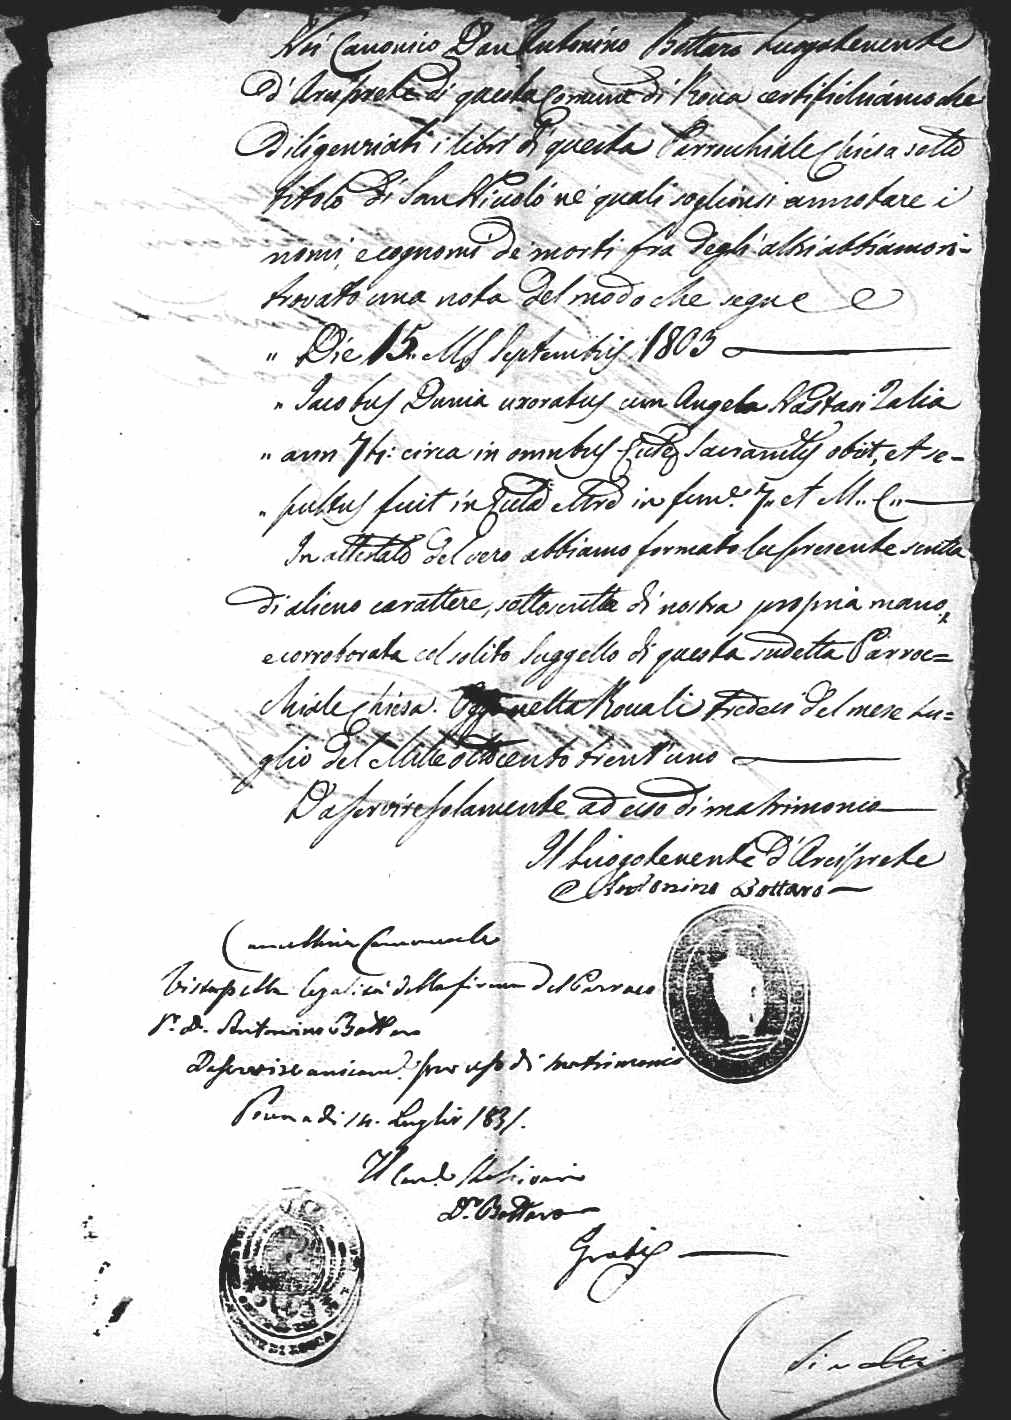 Noi Canonico Don Antonino Bottaro Luogotenente
d'Arciprete di questa Comune di Rocca certifichiamo che
diligenziati i libri di questa Parrochiale Chiesa sotto
titolo di San Nicolò ne' quali soglionsi annotare i
nomi, e cognomi de morti fra degli altri abbiamo ri-
trovato una nota del modo che segue
" Die 15.. Septembris 1803
" Jacobus Dunia uxoratus cum Angela Nastasi Zalia
" ann 74: circa in omnibus Sacramtis obiit, et se-
" pultus fuit in 7.. et M.. C..
In attestato del vero abbiamo formato la presente scritta
di alieno carattere, sottoscritta di nostra propria mano,
e corroborata col solito suggello di questa sudetta Parroc=
chiale Chiesa. Oggi nella Rocca li tredeci del mese Lu=
glio del Mille ottocento trent'uno
Da servire solamente ad uso di matrimonio
Il Luogotenente d'Arciprete
Antonino Bottaro
Cancelleria Comunale
Vista per la legalità della firma del Parroco
Sr. D. Antonino Bottaro
Da servire unicam.e per uso di matrimonio
Rocca di 14. Luglio 1831.
Il Canc.
Dr. Bottaro
Gratis
DI ROCCA